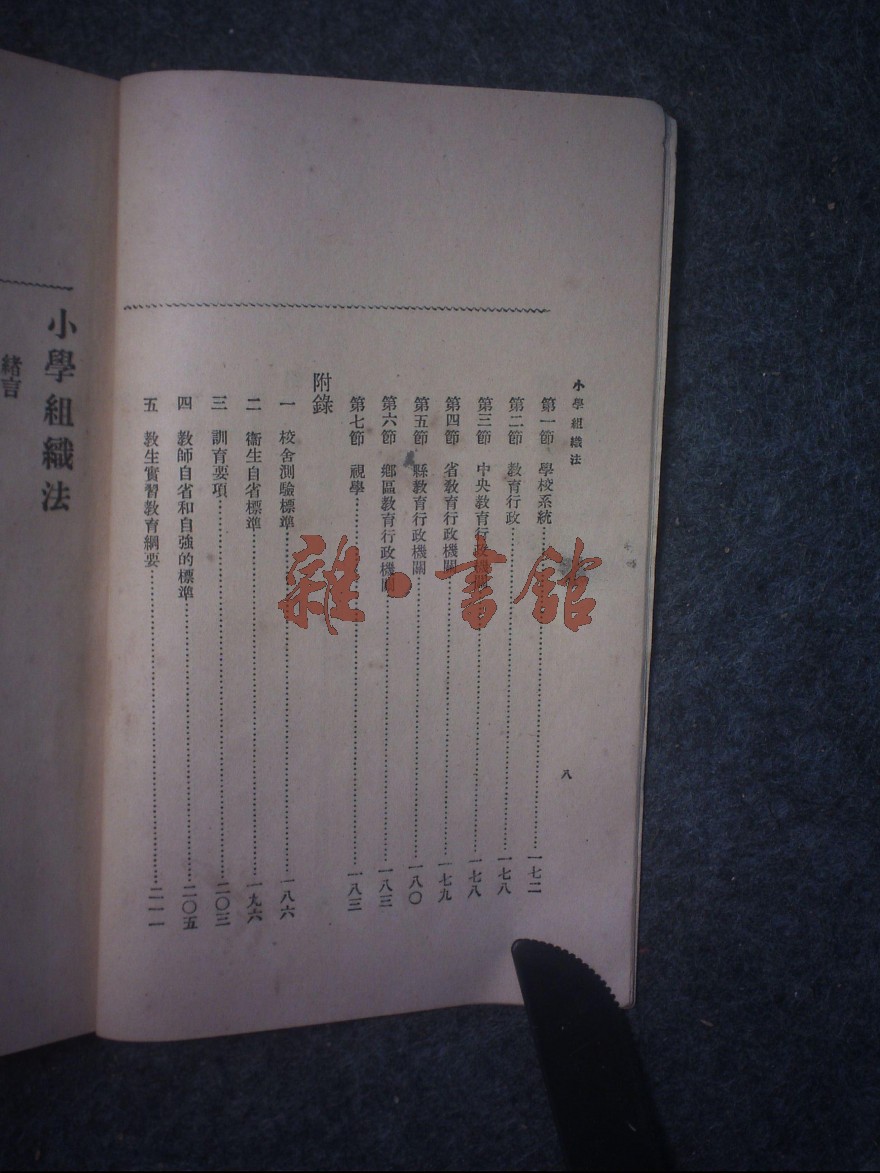 小學組織法
八
第一節 學校系統……一七二
第二節 教育行政……一七八
第三節 中央教育行政機關……一七八
第四節 省教育行政機關……一七九
第五節 縣教育行政機關……一八〇
第六節 鄉區教育行政機關……一八三
第七節 視學……一八三
附錄
一 校舍測驗標準……一八六
二 衞生自省標準……一九六
三 訓育要項……二〇三
四 教師自省和自強的標準……二〇五
五 教生實習教育綱要……二一一
小學組織法
緒言
雜·書館